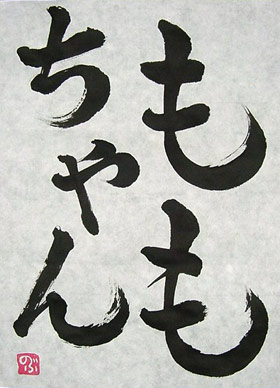 もも
ちゃん
のぶ